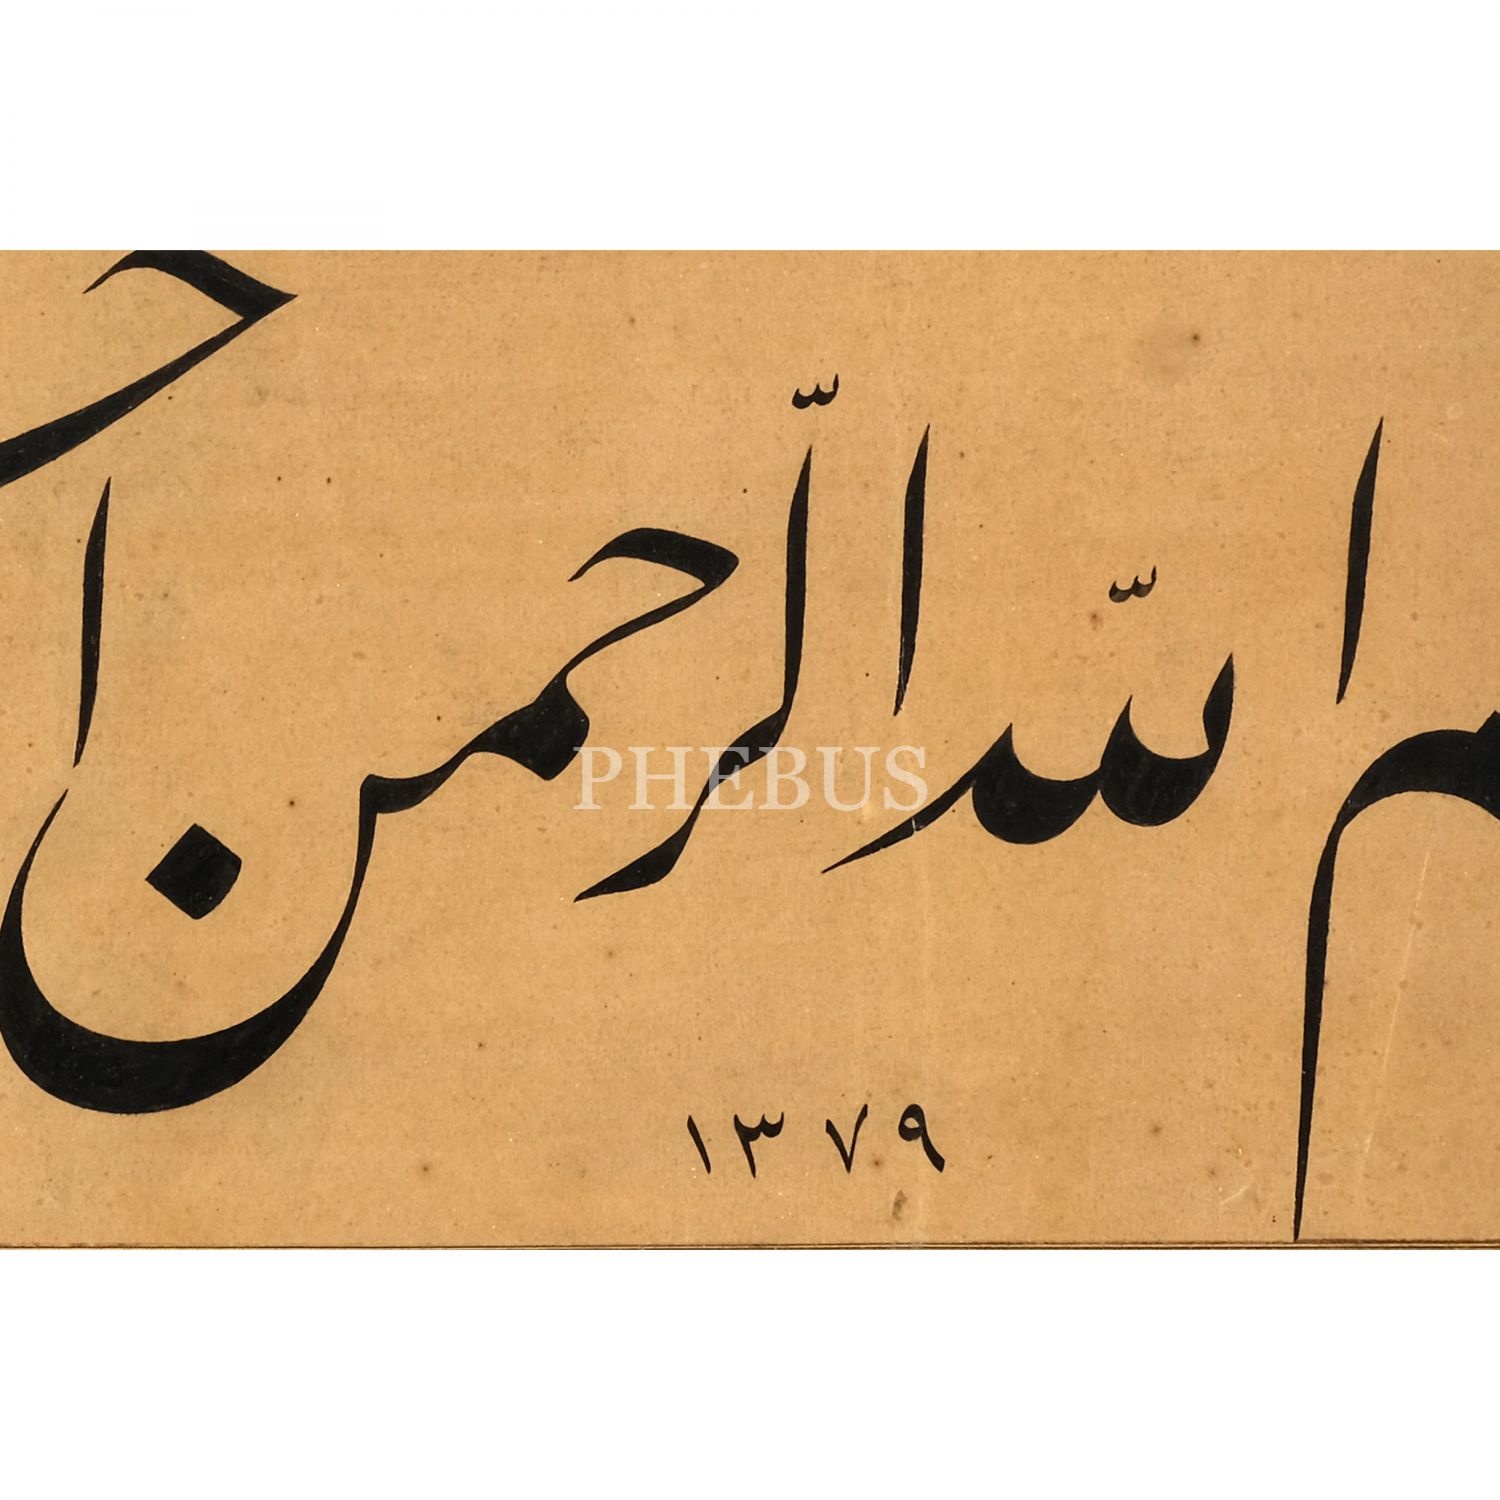 الله الرحمن
PHEBUS
١٣٧٩